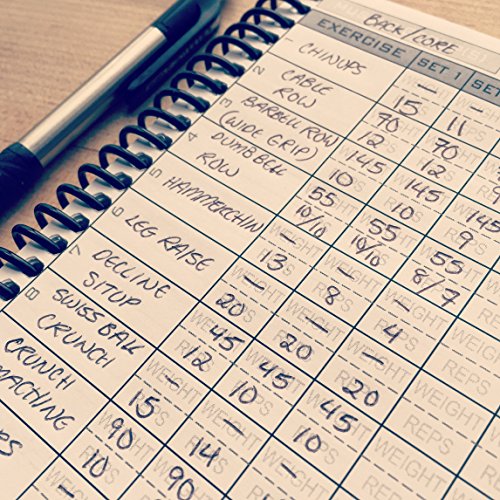 BACK/CORE
EXERCISE SET 1 SET
1 CHINUPS - -
15 11
2 CABLE ROW 70 70
12 12
3 BARBELL ROW (WIDE GRIP) 145 145 145
10 10 9
4 DUMBBELL ROW 55 55 55
10/10 10/10 8/7
5 HAMMERCHIN - - -
13 8 4
6 LEG RAISE - - -
20 20 20
7 DECLINE SITUP 45 45 45
12 10 10
8 SWISS BALL CRUNCH - - -
15 14
CRUNCH 90 90
10